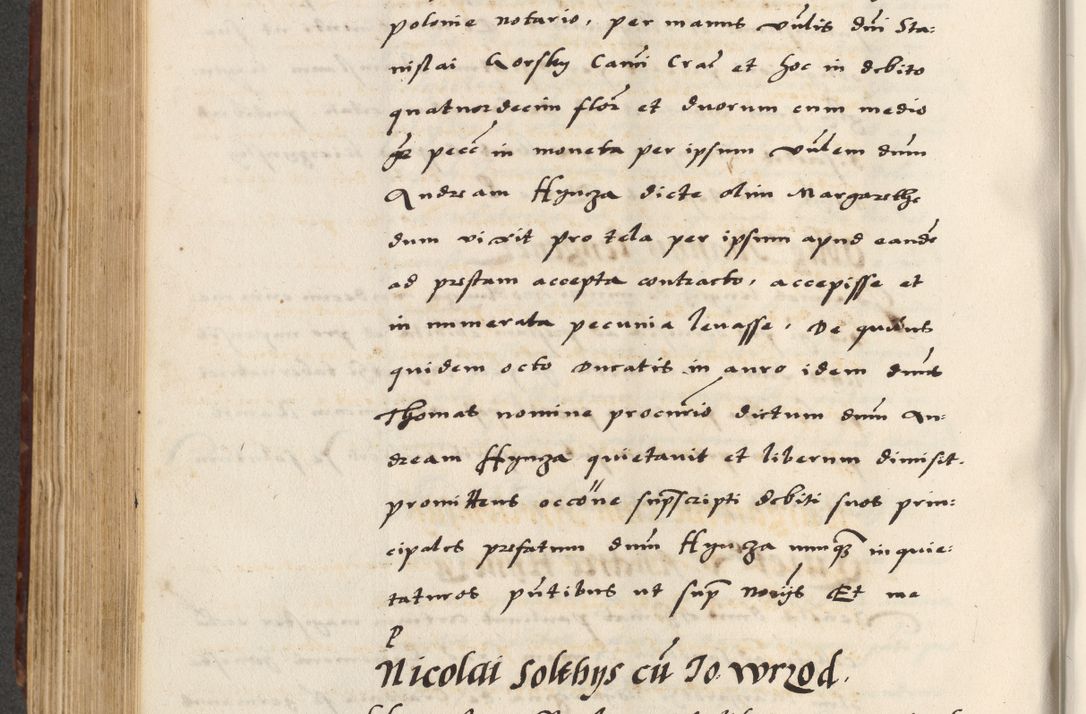 polonie notario, per manus vn̄lis dn̄i Sta:
nislai Gorsky Can̄ci Crac̄ et hoc in debito
quatuordecim flor̄ et duorum cum medio
gr̄ pecc̄ in moneta per ipsum vn̄lem dn̄m
Andream Hynza dicte olim Margarethe
dum vixit pro tela per ipsum apud eande
ad prestam accepta contracto, accepisse et
in numerata pecunia levasse, De quibus
quidem octo Ducatis in auro idem dn̄us
Thomas nomine procur̄io dictum dn̄m An:
dream Hynza quietavit et liberum dimisit.
promittens occōne sup̄scripti debiti suos prin:
cipales prefatum dn̄m Hynza nunq̄ inquie:
taturos pn̄tibus ut sup̄ Not̄ijs Et me
P
Nicolai Solthys cū Jo. Wrzod.